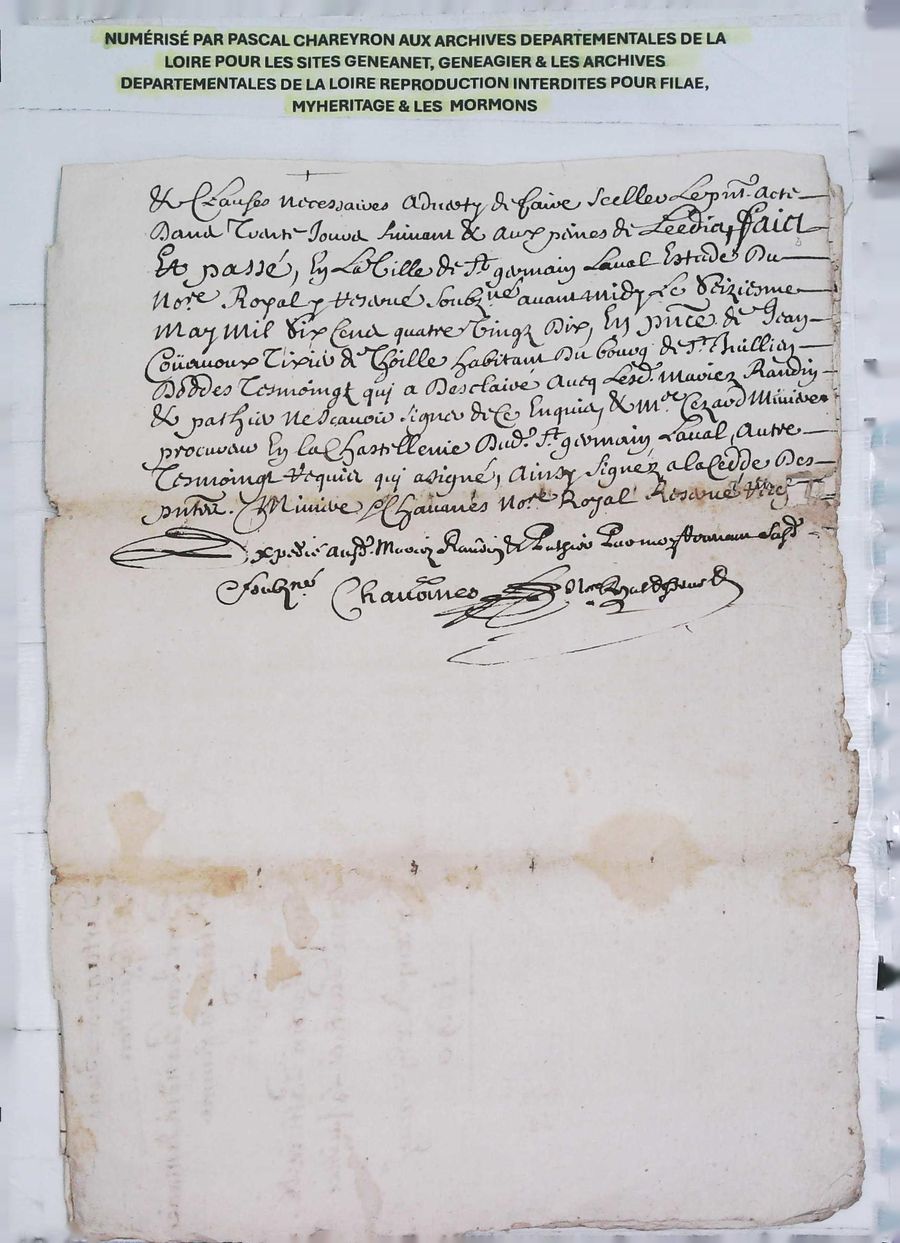 NUMÉRISÉ PAR PASCAL CHAREYRON AUX ARCHIVES DEPARTEMENTALES DE LA
LOIRE POUR LES SITES GENEANET, GENEAGIER & LES ARCHIVES
DEPARTEMENTALES DE LA LOIRE REPRODUCTION INTERDITES POUR FILAE,
MYHERITAGE & LES MORMONS
& Clauses necessaires adverty de faire sceller le pnt. acte
Dans trante Jours suivant & aux peines de Leedict, Faict
Et passé, En La Ville de St germain Laval Estude Du
No.re Royal & reservé soubz.né avant midy Le Seizieme
May Mil Six Cens quatre Vingt Dix, En pnce de Jean
Tixier de habitant Du bourg de St. Jullien
Doddes Tesmoingt qui a Desclairé Avecq Lesd. Mariez Randin
& pathier ne Scavoir signer de Ce Enquis, & M.re Cezard Miniere
procureur En la Chastellenie Dud. St. germain Laval, Autre
Tesmoingt requis qui a signé, Ainsy Signéz a la Cedde Des
pntes. Miniere & Chavanes No.re Royal Reservé
Expedié ausd. Mariez Randin & Pathier
Soubz.né Chavannes No.re Royal Reservé